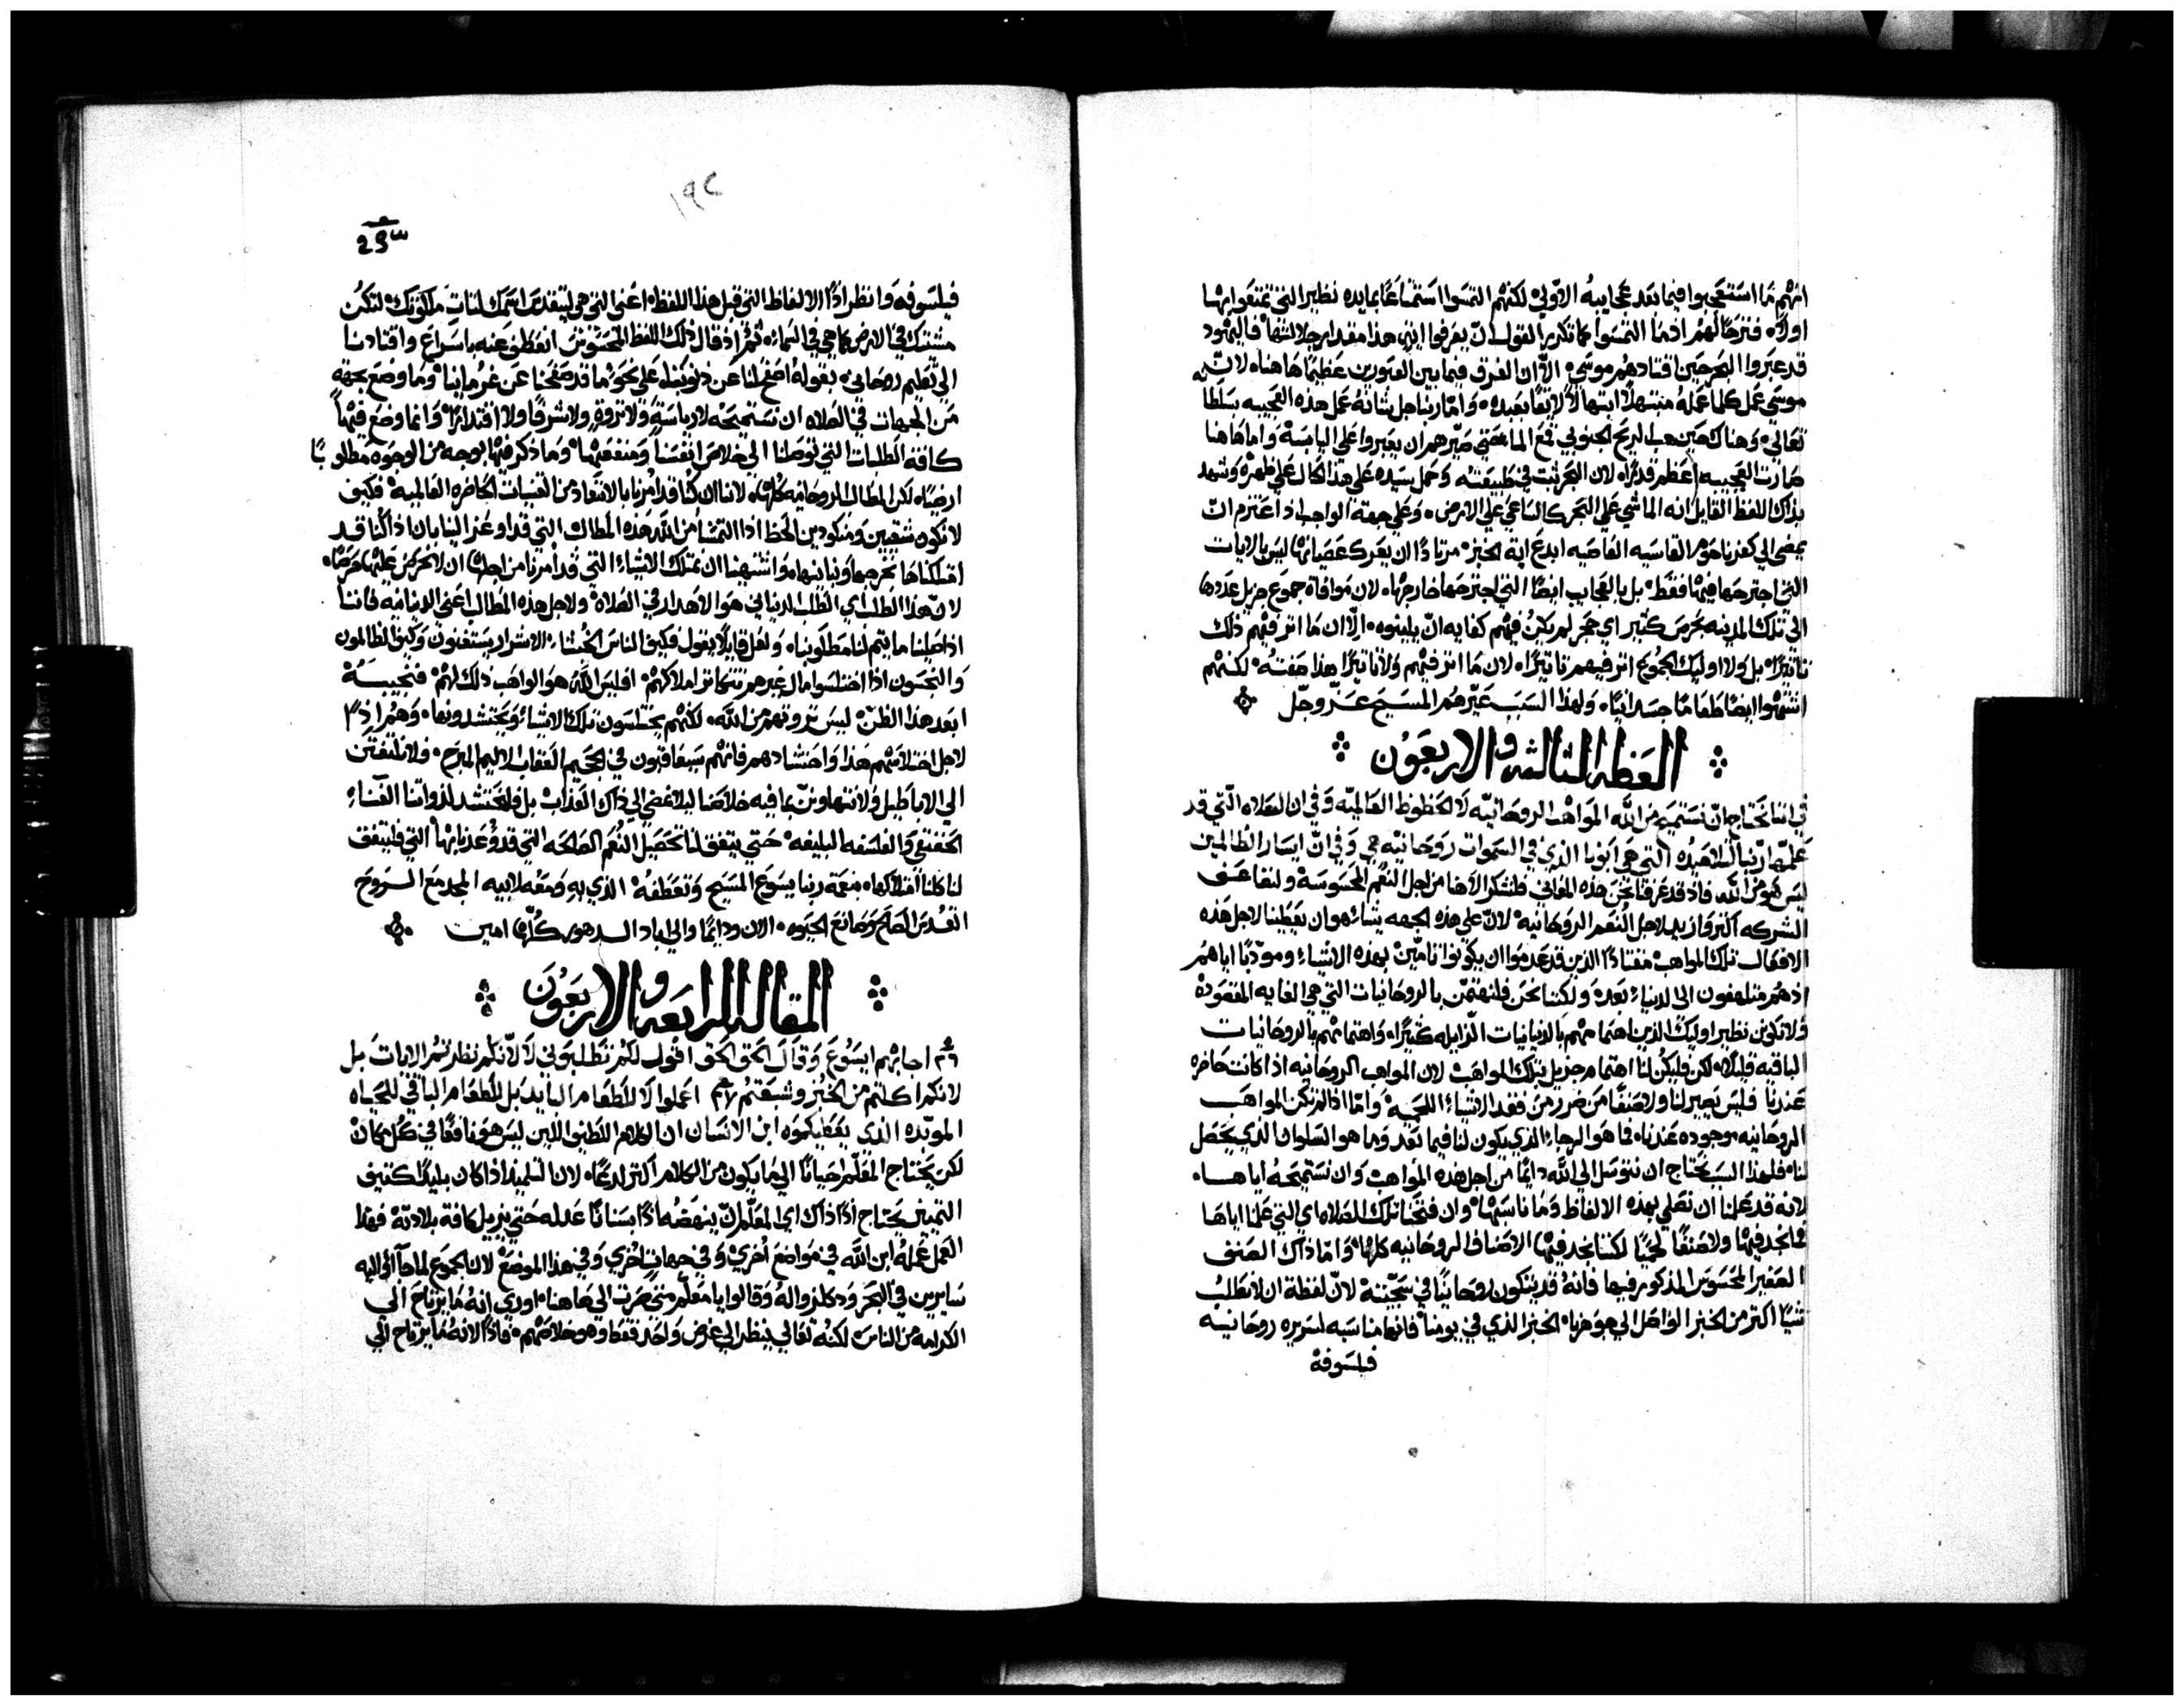 انهم ما استعجبوا فيما بعد عجايبه الاولي لكنهم التمسوا استمتاعًا بمايده نظير التي تمتعوا بها
اولاً فترجا لهم اذ ما التمسوا كما تكرير القول ان يعرفوا ابن هذا مقدار جلالتها فاليهود
قد عبروا البحر حين اقتادهم موسي الا ان الفرق فيما بين العبورين عظيمًا هاهنا لان
موسي عمل كلما عمله مبتهلاً ابتهالاً لايقًا بعبده واما ربنا جل شانه عمل هذه العجيبه بسلطانه
تعالي وهناك حين هب الريح الجنوبي قمع الما حتي صيرهم ان يعبروا علي اليابسة واما هاهنا
صارت العجيبه اعظم قدرًا لان البحر ثبت في طبيعته وحمل سيده علي هذا الحال علي ظهره وشهد
بذاك اللفظ القايل انه الماشي علي البحر كالساعي علي الارض وعلي جهة الواجب اذ اعتزم ان
يمضي الي كفرناحوم القاسيه العاصيه ابدع اية الخبز مرتادًا ان يعرك عصيانها ليس بالايات
التي اجترحها فيها فقط بل بالعجايب ايضًا التي اجترحها خارجها لان موافاة جموع جزيل عددها
الي تلك المدينه بحرص كثير اي حجر لم تكن فيهم كفايه ان يلينوه الا ان ما اثر فيهم ذلك
تاثيرًا بل ولا اوليك الجموع اثر فيهم تاثيرًا لان ما اثر فيهم ولا تاثيرًا هذا صفته لكنهم
اشتهوا ايضًا طعامًا جسدانيًا ولهذا السبب عيرهم المسيح عز وجل
العظه الثالثه والاربعون
في اننا نحتاج ان نستميح من الله المواهب الروحانيه لا الحظوظ العالميه وفي ان الصلاه التي قد
علمها ربنا لتلاميذه التي هي ابونا الذي في السموات روحانيه هي وفي ان ايسار الظالمين
ليس هو من الله فاذ قد عرفنا نحن هذه المعاني فلنشكر الاهنا من اجل النعم المحسوسة ولنضاعف
الشركه اكثر وازيد لاجل النعم الروحانيه لان علي هذه الجهه يشا هو ان يعطينا لاجل هذه
الافعال تلك المواهب مقتادًا الذين قد عدموا ان يكونوا تامين بهذه الاشيا ومودبًا اياهم
اذ هم متلهفون الي الدنيا بعد ولكننا نحن فلنهتمن بالروحانيات التي هي الغايه المقصوده
ولا نكون نظير اوليك الذين اهتمامهم بالدنيانيات الزايله كثيرًا واهتمامهم بالروحانيات
الباقيه قليلاً لكن فليكن لنا اهتمام جزيل بتلك المواهب لان المواهب الروحانيه اذا كانت حاضره
عندنا فليس يصير لنا ولا صنفًا من ضرر من فقد الاشيا اللحميه واما اذا لم تكن المواهب
الروحانيه موجوده عندنا فما هو الرجا الذي يكون لنا فيما بعد وما هو السلوان الذي يحصل
لنا فلهذا السبب نحتاج ان نتوسل الي الله دايمًا من اجل هذه المواهب وان نستميحه اياها
لانه قد علمنا ان نصلي بهذه الالفاظ وما ناسبها وان فتحنا تلك الصلاه اي التي علمنا اياها
فما نجد فيها ولا صنفًا لحميًا لكننا نجد فيها الاصناف الروحانيه كلها واما ذاك الصنف
الصغير المحسوس المذكور فيها فانه قد يتكون روحانيًا في سجيته لان لفظة ان لا نطلب
شيًا اكثر من الخبز الواصل الي جوهرنا الخبز الذي في يومنا فانها مناسبه لسريره روحانيه
فيلسوفة
١٩٢
فيلسوفه وانظر اذًا الالفاظ التي قبل هذا اللفظ اعني التي هي ليتقدس اسمك لتات ملكوتك لتكن
مشيتك في الارض كما هي في السما ثم اذ قال ذلك اللفظ المحسوس انعطف عنه باسراع واقتادنا
الي تعليم روحاني بقوله اصفح لنا عن ذنوبنا علي نحو ما قد صفحنا عن غرماينا وما وضع بجهة
من الجهات في الصلاه ان نستميحه لا رياسة ولا ثروة ولا شرفًا ولا اقتدارًا وانما وضع فيها
كافة الطلبات التي توصلنا الي خلاص انفسنا ومنفعتها وما ذكر فيها بوجه من الوجوه مطلوبًا
ارضيًا لكن المطالب الروحانيه كلها لاننا ان كنا قد امرنا بالابتعاد من القنيات الحاضره العالميه فكيف
لا نكون شقيين ومنكودين الحظ اذا التمسنا من الله هذه المطالب التي قد اوعز الينا بان اذا كنا قد
امتلكناها نخرجها ونباينها واشتهينا ان نمتلك الاشيا التي قد امرنا من اجلها ان لا نحرص عليها حرصًا
لان هذا الطلب اي الطلب الدنياني هو الاهدار في الصلاة ولاجل هذه المطالب اعني الدنيانيه فاننا
اذا صلينا ما يتم لنا مطلوبنا ولعل قايلاً يقول فكيف الناس الخبثا الاشرار يستغنون وكيف الظالمون
والنجسون اذا اختلسوا مال غيرهم تتكاثر املاكهم افليس الله هو الواهب ذلك لهم فنجيبه
ابعد هذا الظن ليس ثروتهم من الله لكنهم يختلسون تلك الاشيا ويحتشدونها وهم اذًا
لاجل اختلاسهم هذا واحتشادهم فانهم سيعاقبون في الجحيم العقاب الاليم المبرح فلا نلتفتن
الي الاباطيل ولا نتهاونن بما فيه خلاصنا ليلا نمضي الي ذاك العذاب بل فلنحتشد لذواتنا الغناء
الحقيقي والفلسفه البليغه حتي يتفق لنا تحصيل النعم الصالحه التي قد وُعدنا بها التي فليتفق
لنا كلنا امتلاكها بنعمة ربنا يسوع المسيح وتعطفه الذي به ومعه لابيه المجد مع الروح
القدس الصالح وصانع الحيوه الان ودايمًا والي اباد الدهور كلها امين
المقاله الرابعه والاربعون
اجابهم ايسوع وقال الحق الحق اقول لكم تطلبوني لا لانكم نظرتم الايات بل
لانكم اكلتم من الخبز وشبعتم اعملوا لا للطعام البايد بل للطعام الباقي للحياه
الموبده الذي يعطيكموه ابن الانسان ان الكلام اللطيف اللين ليس هو نافعًا في كل مكان
لكن يحتاج المعلم احيانًا الي ما يكون من الكلام اكثر لدغًا لان التلميذ اذا كان بليدًا كثيف
التمييز يحتاج اذًا ذاك اي المعلم ان ينهضه عذله حتي يزيل كافة بلادته فهذا
العمل عمله ابن الله في مواضع اخري وفي جهات اخري وفي هذا الموضع لان الجموع لما جا الي اليه
سايرين في البحر ودكلزوا له وقالوا يا معلم متي صرت الي هاهنا اوري انه ما يرتاح الي
الكرامه من الناس لكنه تعالي ينظر الي غرض واحد فقط وهو خلاصهم فاذًا لانه ما يرتاح الي